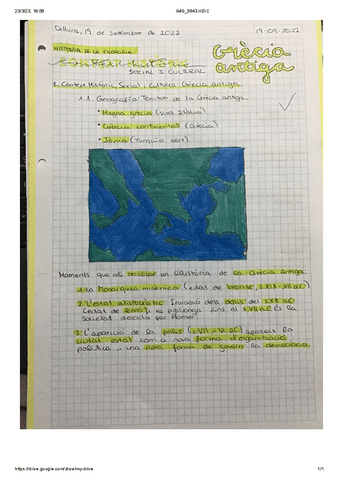 23/9/23, 18:56
IMG_3643.HEIC
Dilluns, 19 de Setembre de 2022
19-09-2022
HISTÒRIA DE LA FILOSOFIA
Grècia
antiga
SOCIAL I CULTURAL
1. Context Històric, Social i Cultural: Grècia antiga.
1.1. Geografia: Territori de la Grècia antiga.
• Magna grècia (sud Itàlia)
• Grècia continental (Grècia)
• Jònia (Turquia oest)
Moments que cal recordar en l'Història de la Grècia Antiga.
1. La Monarquia micènica (edat de bronze, S.XIX-XII aC)
2. L'estat aristocràtic: Invasió dels doris del S.XII aC
(edat de ferro), es prolonga fins al S.VII aC. És la
Societat descrita per Homer.
3. L'aparició de la polis (S.VII - VI aC) apareix la
ciutat estat com a nova forma d'organització
política i una nova forma de govern la democràcia.
https://drive.google.com/drive/my-drive
1/1